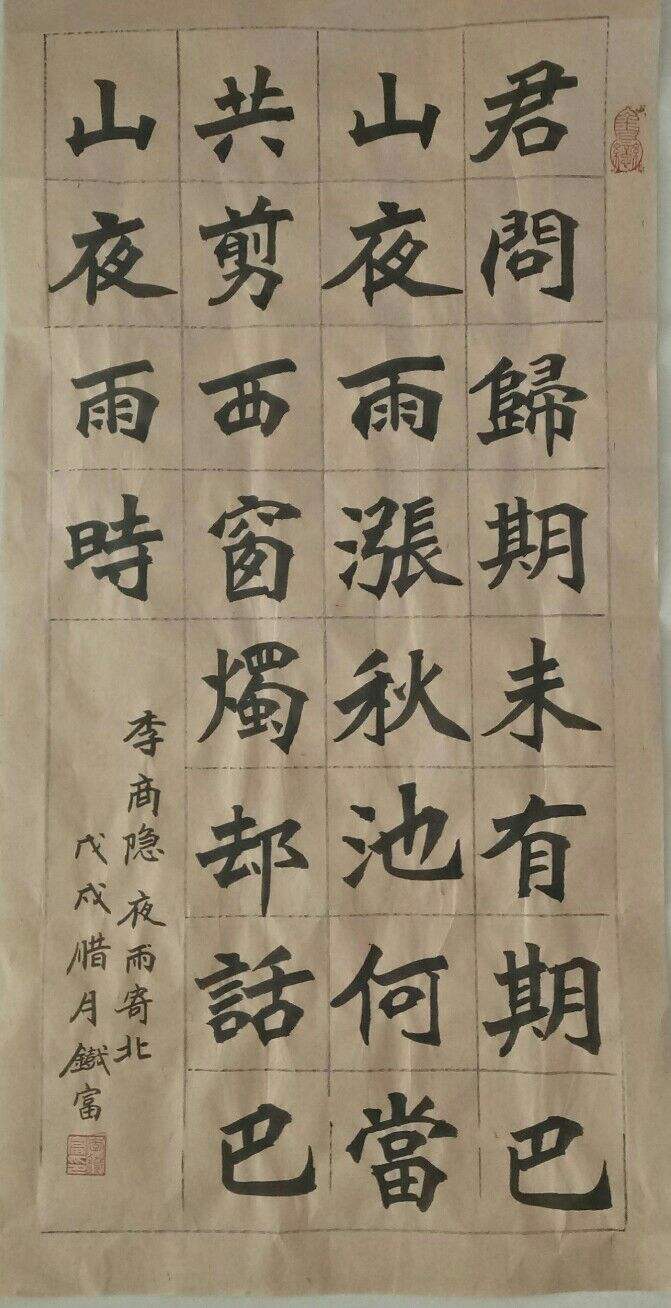 君問歸期未有期巴
山夜雨漲秋池何當
共剪西窗燭却話巴
山夜雨時
李商隐夜雨寄北
戊戌腊月鐵富